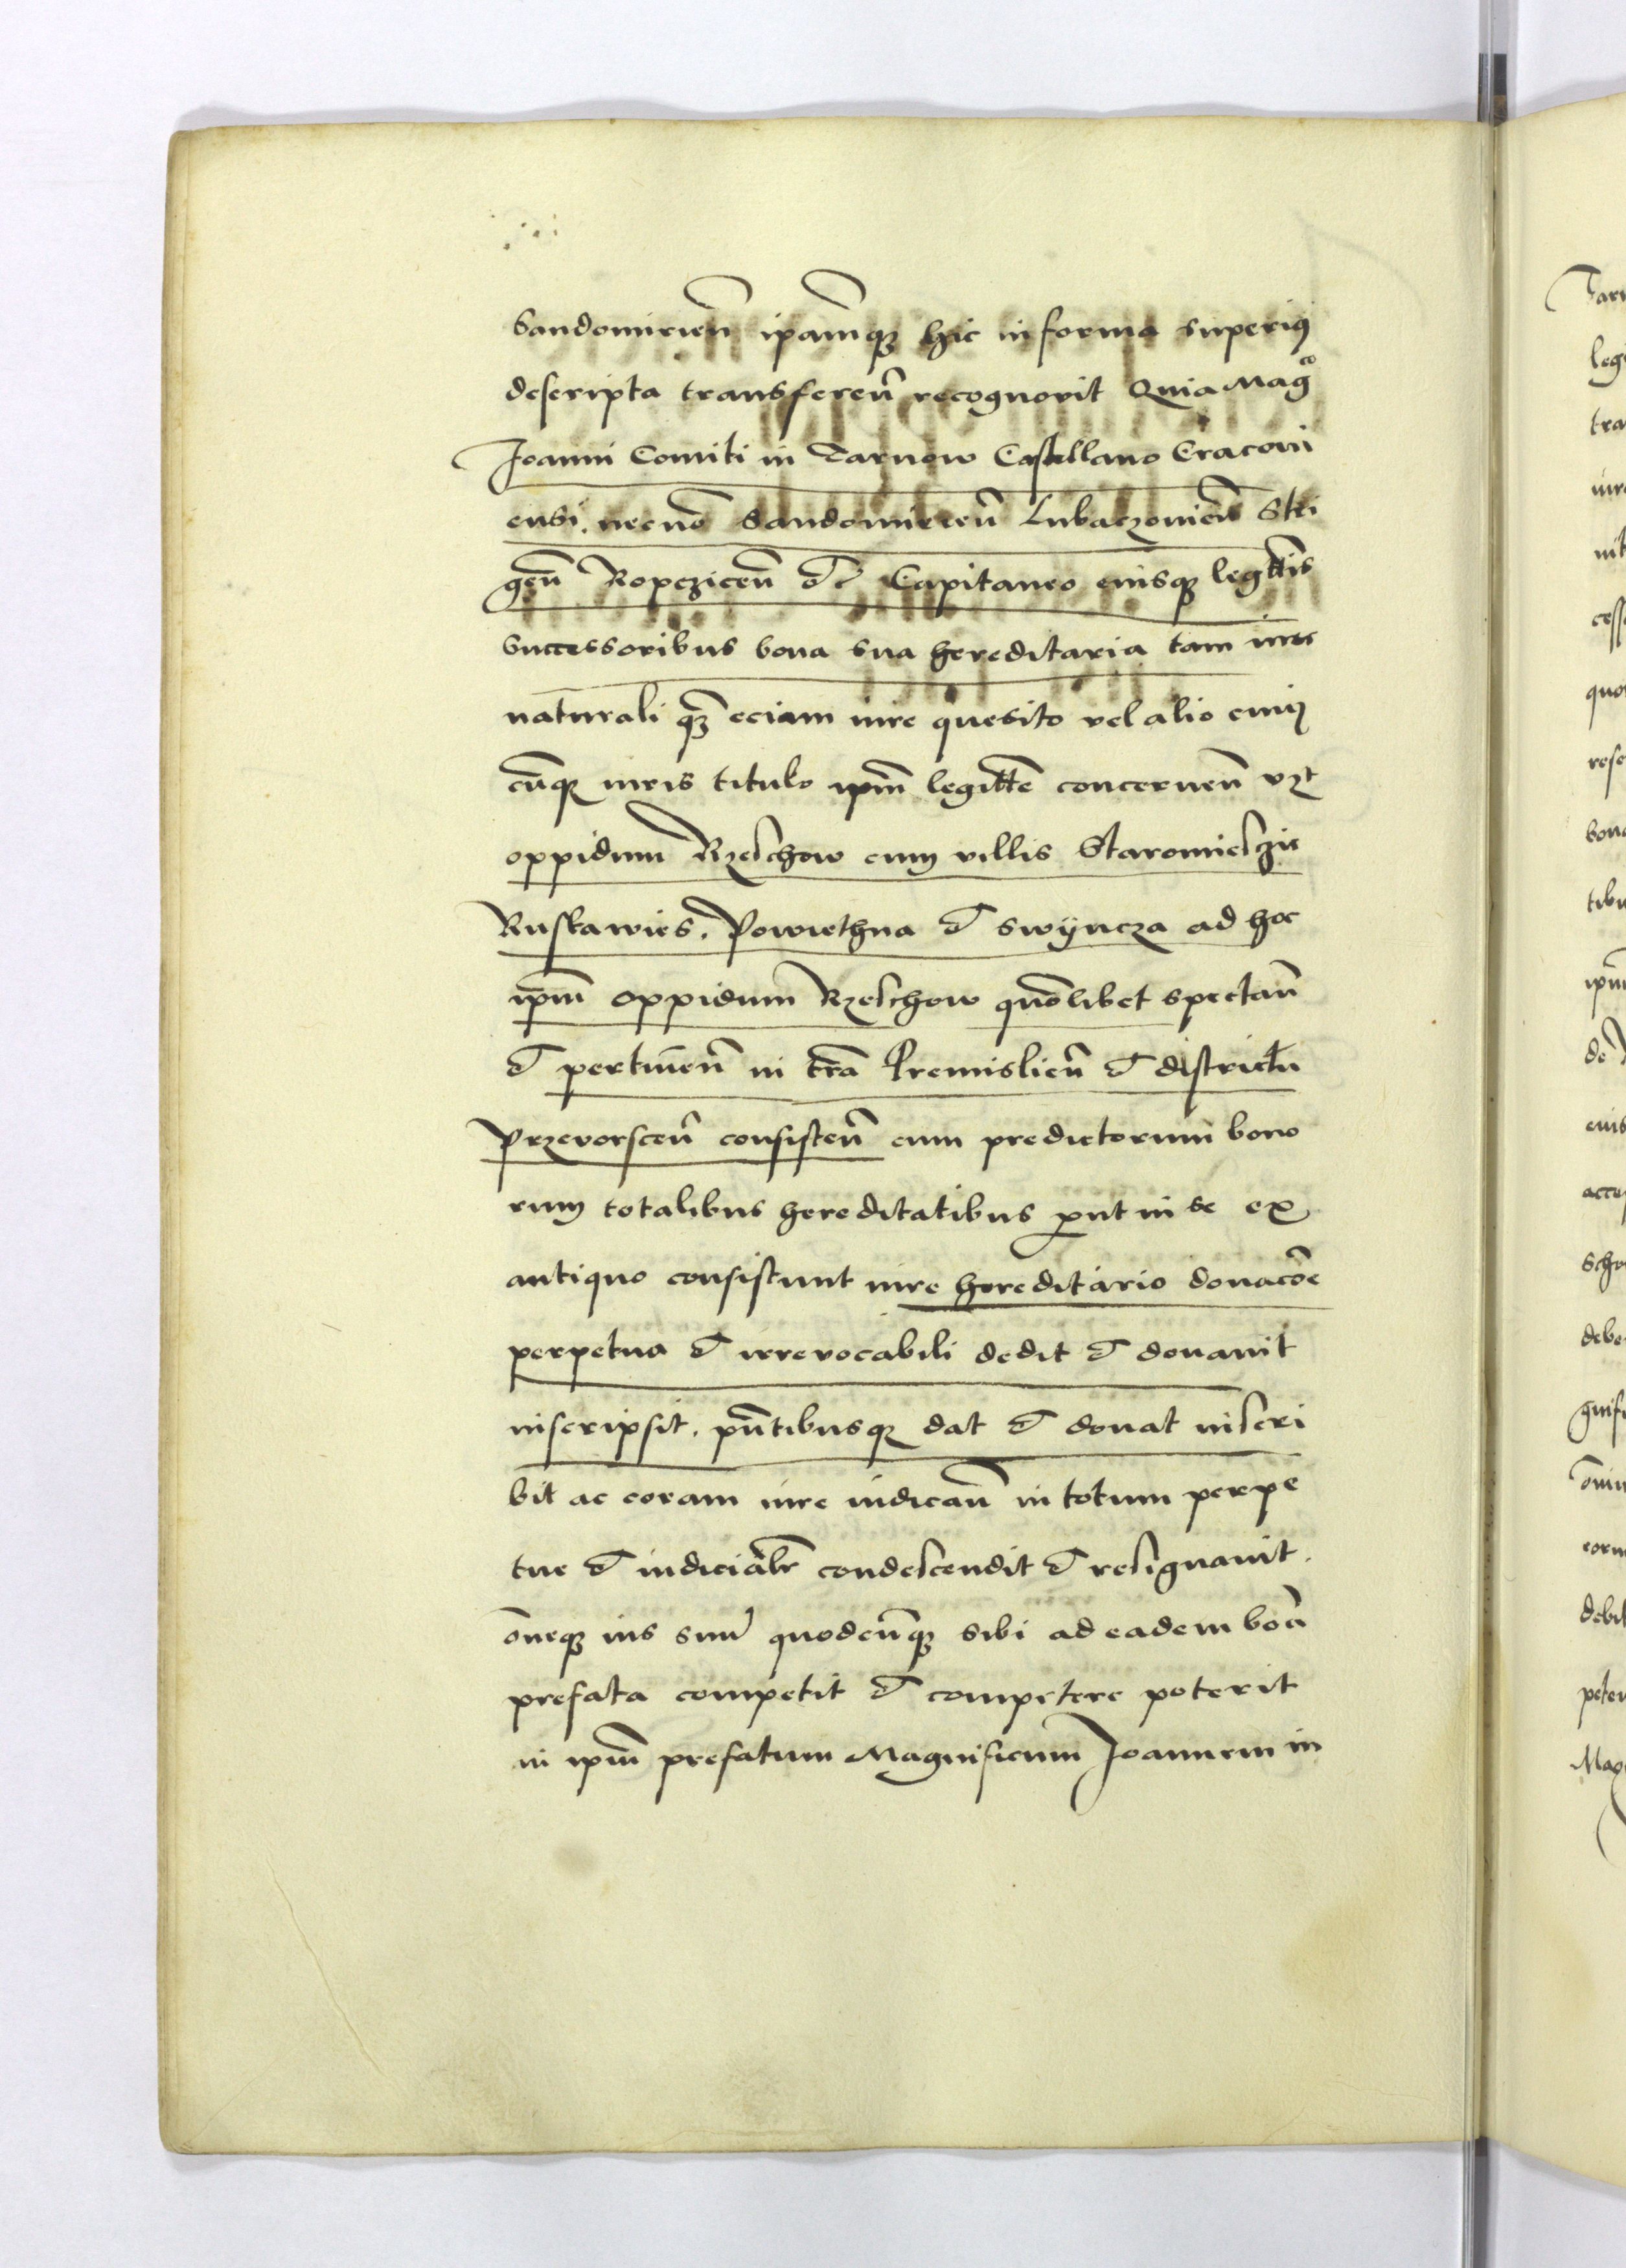 Sandomirien̄ ipam̄q₃ hic in forma superiꝰ
descripta transferen̄ recognovit Quia Magco
Joanni Comiti in Tarnow Castellano Cracovi
ensi. necnō Sandomirien̄ Lubaczovien̄ Stri
gen̄ Ropczicen̄ &c Capitaneo eiusq₃ legttis
Successoribus bona sua hereditaria tam iure
naturali q₃ eciam iure quesito vel alio cuiꝰ
cūq₃ iuris titulo ipm̄ legittē concernen̄ vꝫt
oppidum Rzeschow cum villis Staromieszczie
Ruskawies. Powiethna & Swÿncza ad hoc
ipm̄ oppidum Rzeschow quōlibet spectan̄
& pertinen̄ in trā Premislien̄ & districtu
Przevorscen̄ consisten̄ cum predictorum bono
rum totalibus hereditatibus put in se ex
antiquo consistunt iure hereditario donacōe
perpetua & irrevocabili dedit & donavit
inscripsit. pn̄tibusq₃ dat & donat inscri
bit ac coram iure iudican̄ in totum perpe
tue & iudicialr̄ condescendit & resignavit.
ōneq₃ ius suū quodcūq₃ sibi ad eadem bōa
prefata competit & competere poterit
in ipm̄ prefatum Magnificum Joannem in